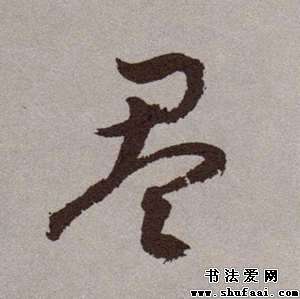 尽
书法爱网
www.shufaai.com